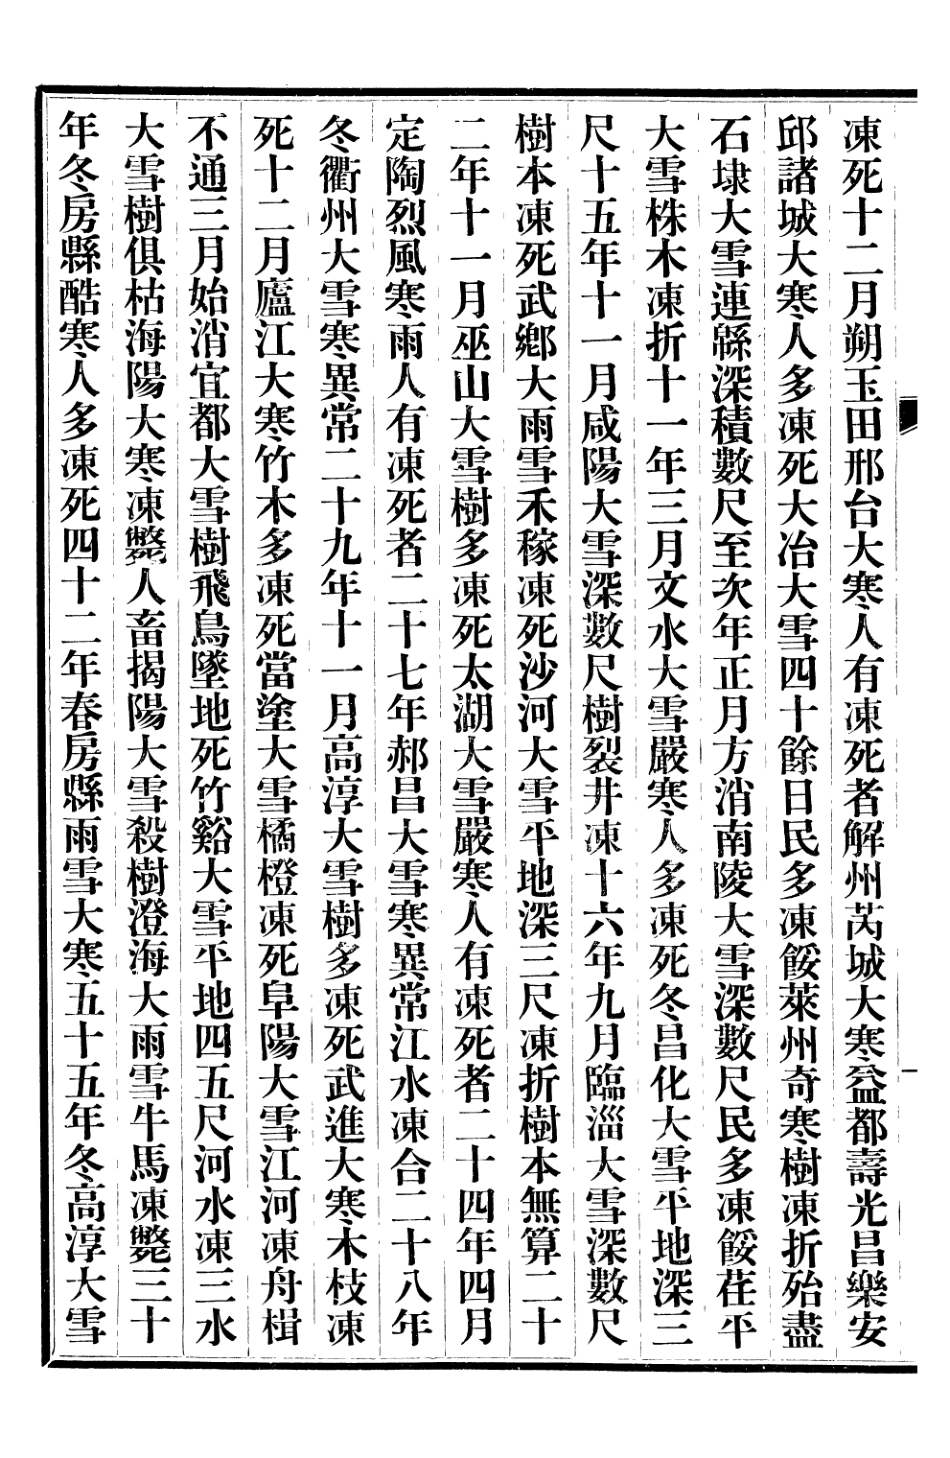 凍死十二月朔玉田邢台大寒人有凍死者解州芮城大寒益都壽光昌樂安
邱諸城大寒人多凍死大冶大雪四十餘日民多凍餒萊州奇寒樹凍折殆盡
石埭大雪連緜深積數尺至次年正月方消南陵大雪深數尺民多凍餒茌平
大雪株木凍折十一年三月文水大雪嚴寒人多凍死冬昌化大雪平地深三
尺十五年十一月咸陽大雪深數尺樹裂井凍十六年九月臨淄大雪深數尺
樹本凍死武鄉大雨雪禾稼凍死沙河大雪平地深三尺凍折樹本無算二十
二年十一月巫山大雪樹多凍死太湖大雪嚴寒人有凍死者二十四年四月
定陶烈風寒雨人有凍死者二十七年郝昌大雪寒異常江水凍合二十八年
冬衢州大雪寒異常二十九年十一月高淳大雪樹多凍死武進大寒木枝凍
死十二月廬江大寒竹木多凍死當塗大雪橘橙凍死阜陽大雪江河凍舟楫
不通三月始消宜都大雪樹飛鳥墜地死竹谿大雪平地四五尺河水凍三水
大雪樹俱枯海陽大寒凍斃人畜揭陽大雪殺樹澄海大雨雪牛馬凍斃三十
年冬房縣酷寒人多凍死四十二年春房縣雨雪大寒五十五年冬高淳大雪
一